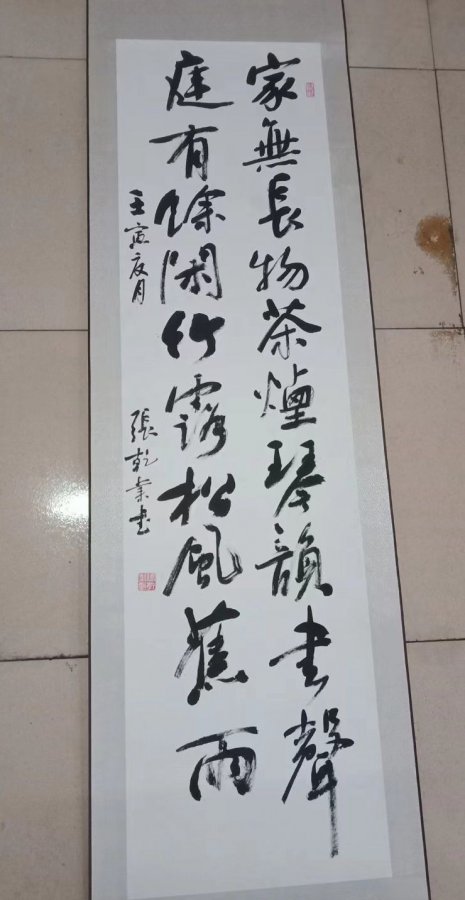 家無長物茶煙琴韻書聲
庭有餘閑竹露松風蕉雨
壬寅夜月
張乾業书